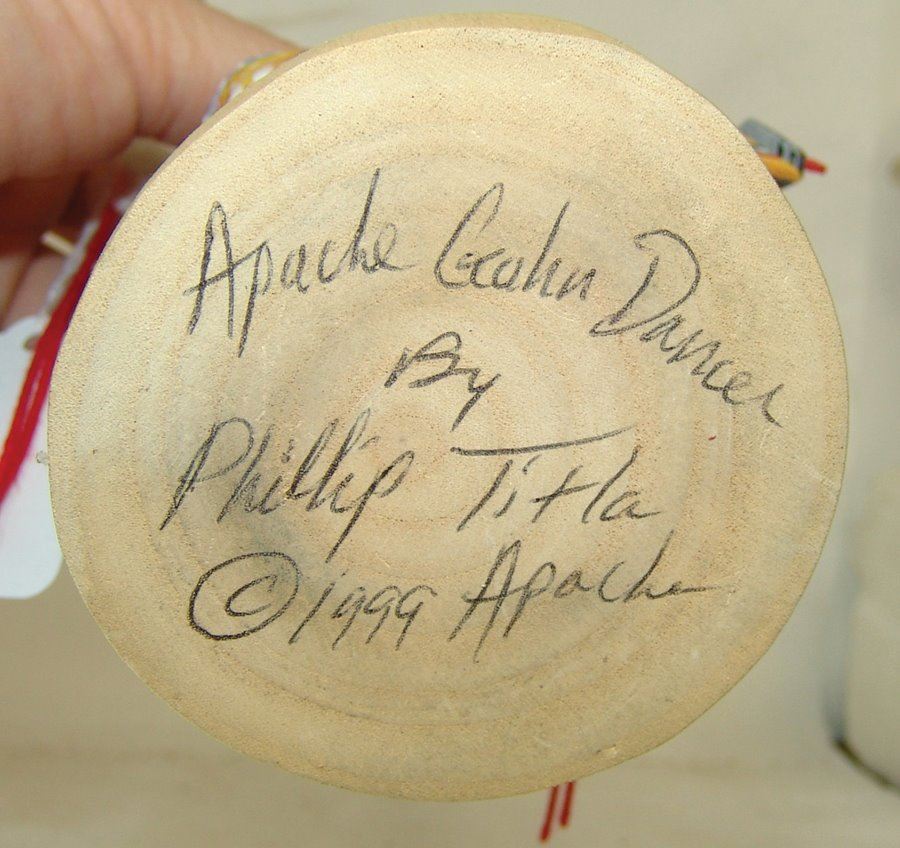 Apache Gaahn Dancer
By
Phillip Titla
© 1999 Apache